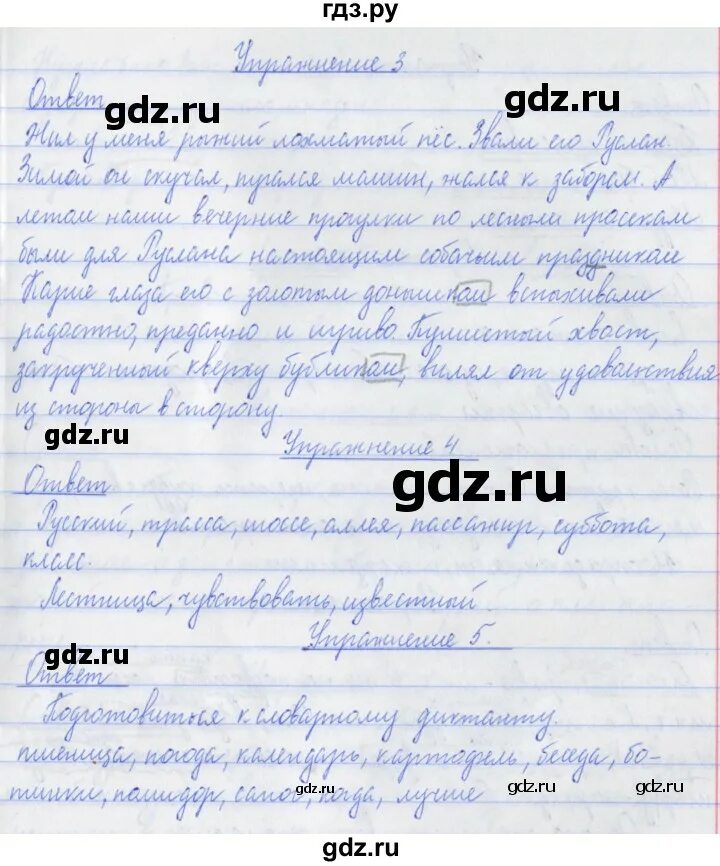 гдз.ру
Упражнение 3
Ответ
gdz.ru
gdz.ru
Жил у меня рыжий лохматый пёс. Звали его Руслан.
Зимой он скучал, пугался машин, жался к заборам. А
летом наши вечерние прогулки по лесным просекам
были для Руслана настоящим собачьим праздником
Карие глаза его с золотым донышком вспыхивали
радостно, преданно и игриво. Пушистый хвост,
закрученный кверху бубликом, вилял от удовольствия
из стороны в сторону.
gdz.ru
Упражнение 4
Ответ
gdz.ru
Русский, трасса, шоссе, аллея, пассажир, суббота,
класс.
Лестница, чувствовать, известный.
gdz.ru
Упражнение 5.
Ответ
Подготовиться к словарному диктанту.
пшеница, погода, календарь, картофель, беседа, бо-
тинки, помидор, сапог, когда, лучше
gdz.ru
gdz.ru
gdz.ru
gdz.ru